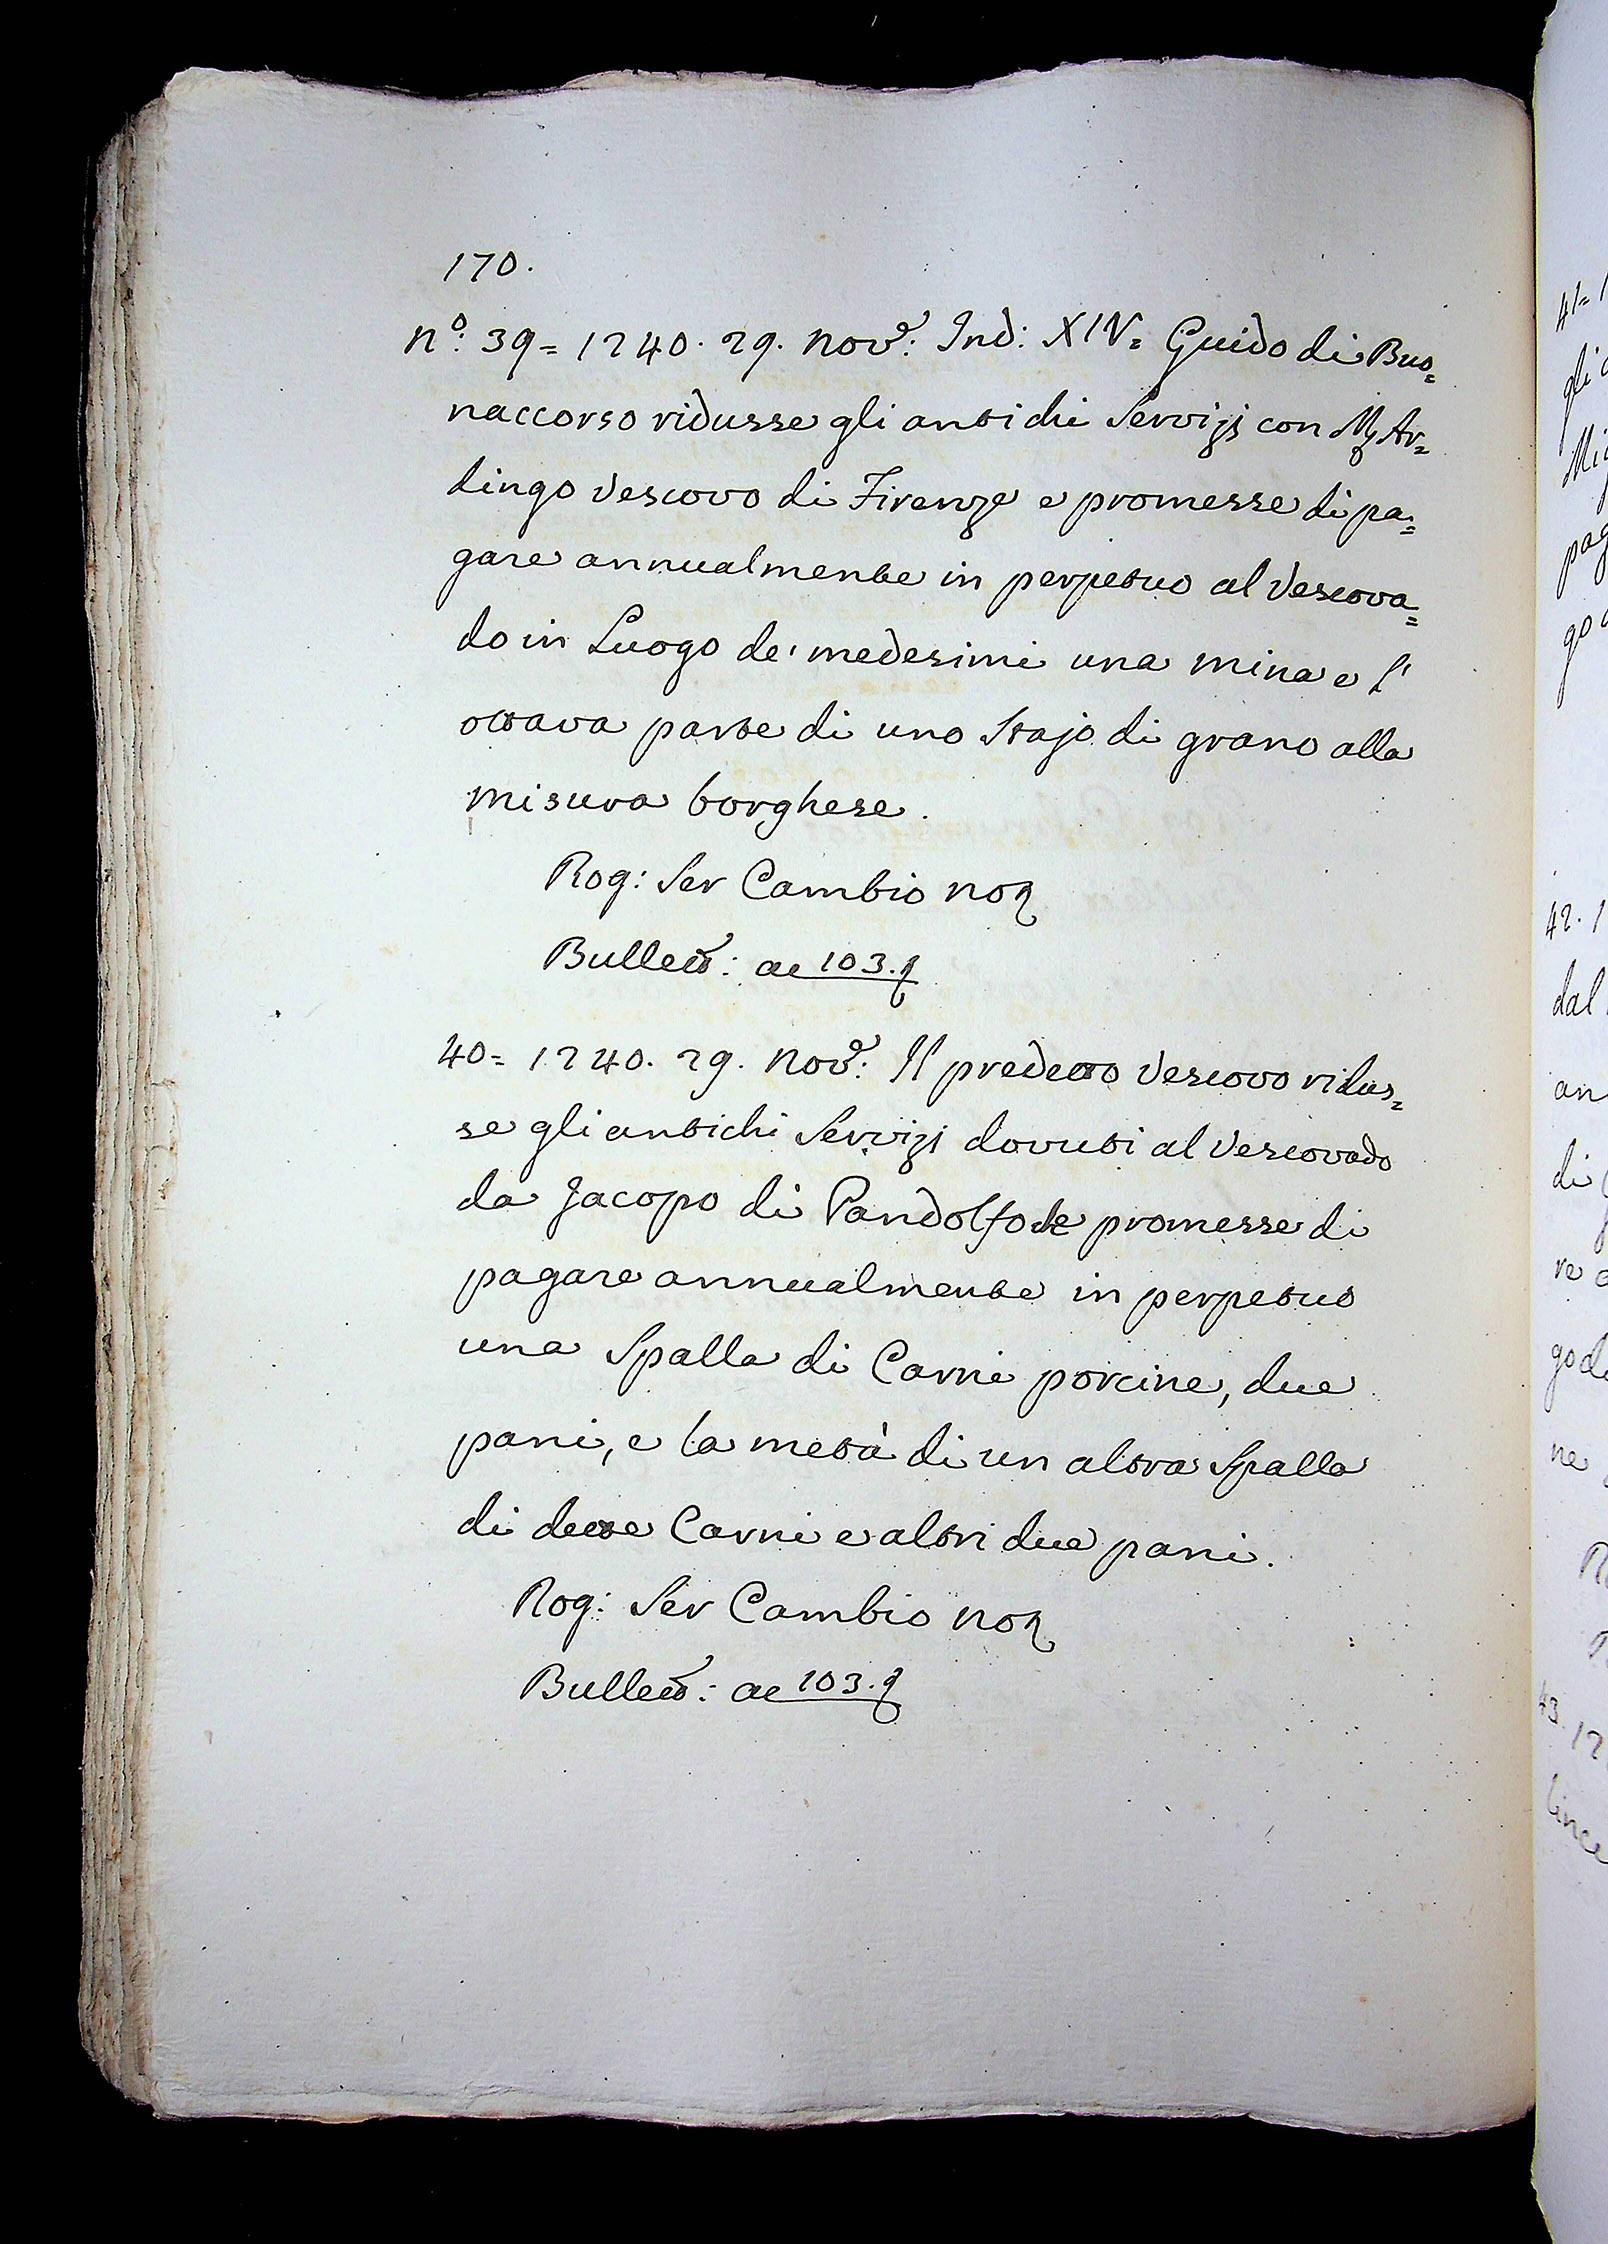 170.
nº: 39= 1240. 29. Nov.e: Ind: XIV= Guido di Buo=
naccorso ridusse gli antichi Servizj con Mg Ar=
dingo Vescovo di Firenze e promesse di pa=
gare annualmente in perpetuo al Vescova=
do in Luogo de' medesimi una mina e l'
ottava parte di uno Stajo di grano alla
misura borghese.
Rog: Ser Cambio not
Bullett: ac 103.
40= 1240. 29. Nov.e: Il predetto Vescovo ridus=
se gli antichi Servizj dovuti al Vescovado
da Jacopo di Pandolfo che promesse di
pagare annualmente in perpetuo
una Spalla di Carni porcine, due
pani, e la metà di un altra Spalla
di dette Carni e altri due pani.
Rog: Ser Cambio not
Bullett: ac 103.
41=
gli
pag
go
42. 1
dal
an
di
re
god
ne
43. 12